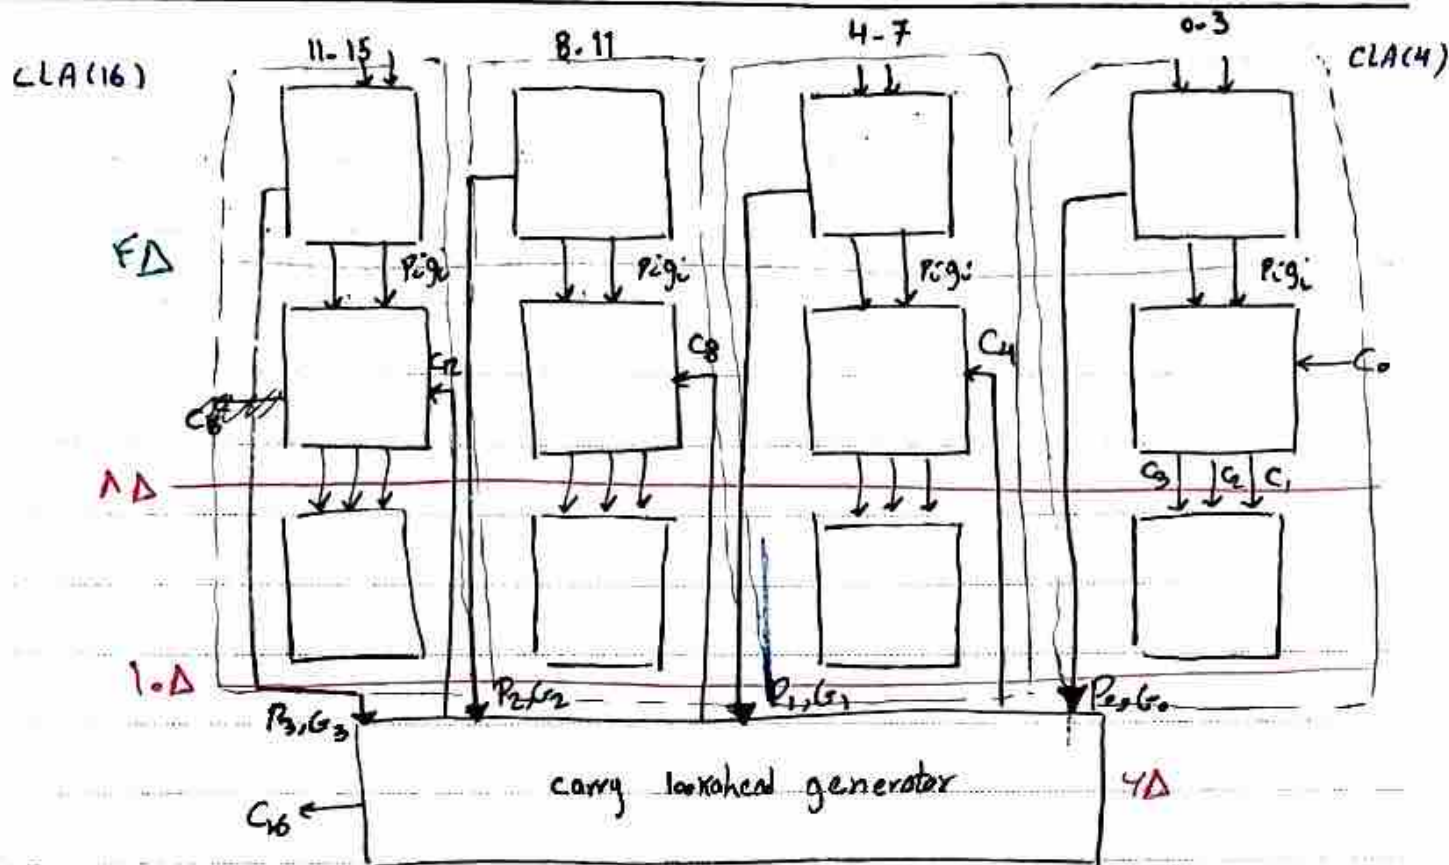 11-15 8-11 4-7 0-3
CLA(16) CLA(4)
۴Δ PiGi PiGi PiGi PiGi
C12 C8 C4 C0
۸Δ C3 C2 C1
۱۰Δ
P3,G3 P2,G2 P1,G1 P0,G0
carry lookahead generator ۶Δ
C16